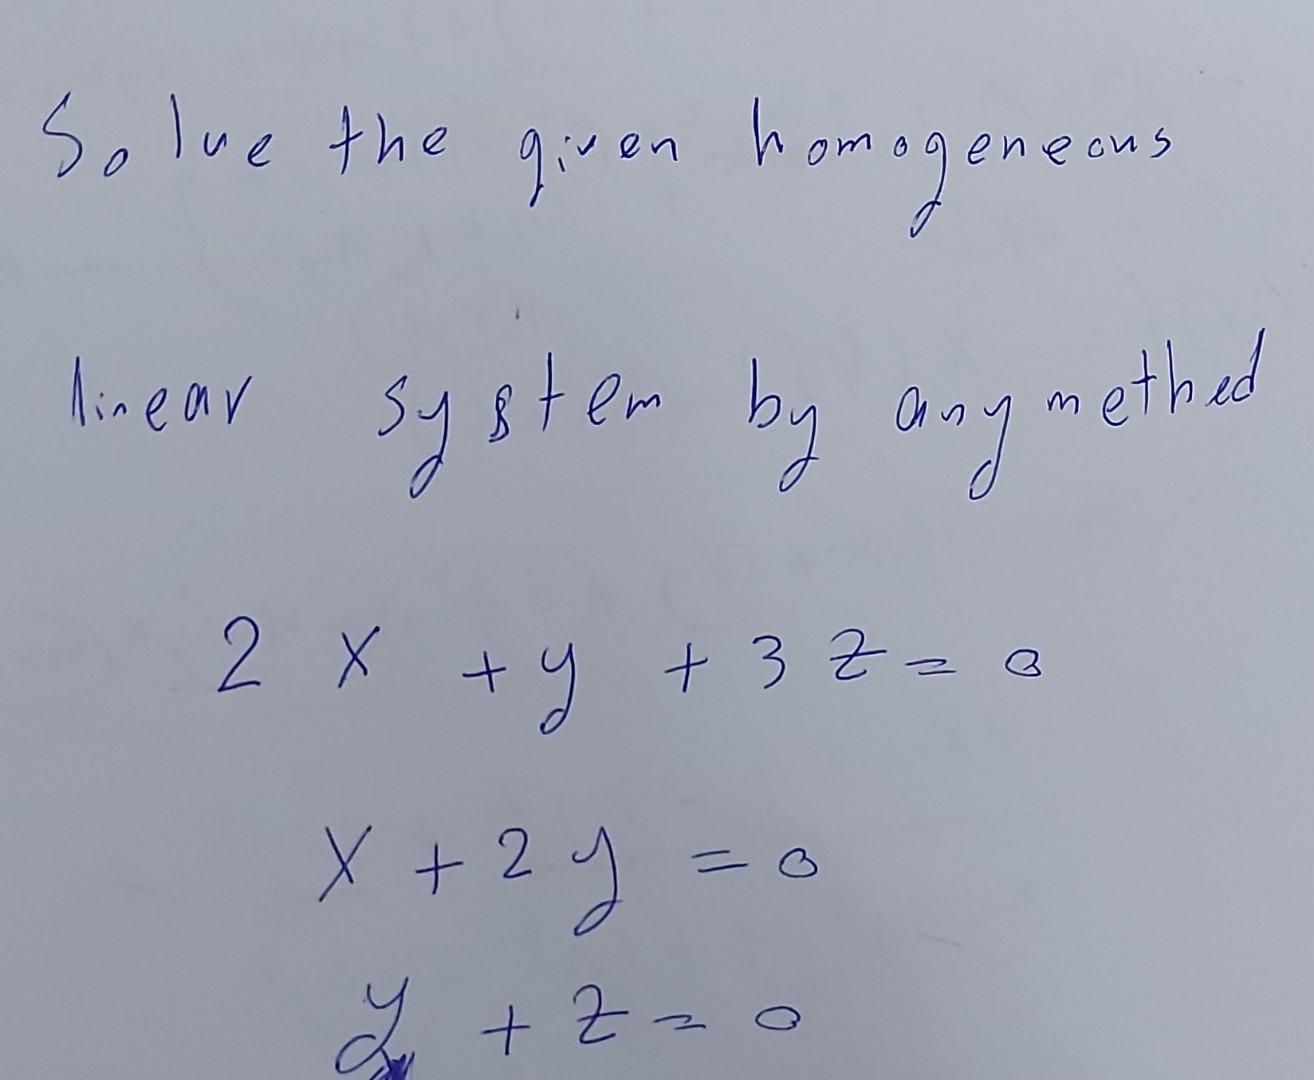 Solve the given homogeneous
linear system by any method
2x + y + 3z = 0
x + 2y = 0
y + z = 0